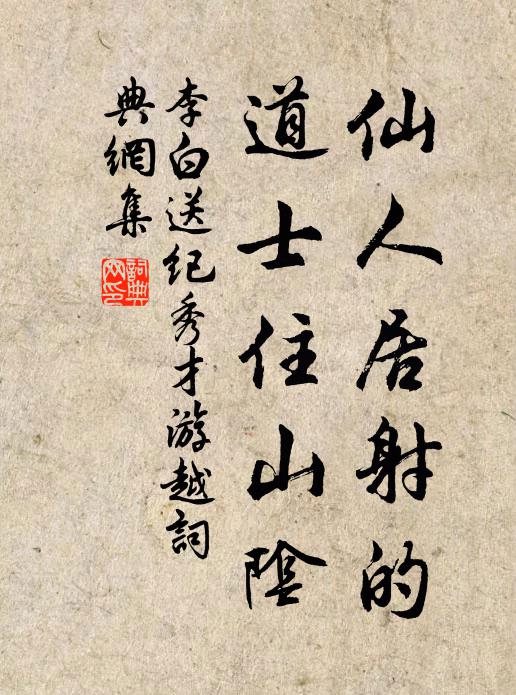 仙人居射的
道士住山陰
李白送纪秀才游越詞
典網集
詞典
网印